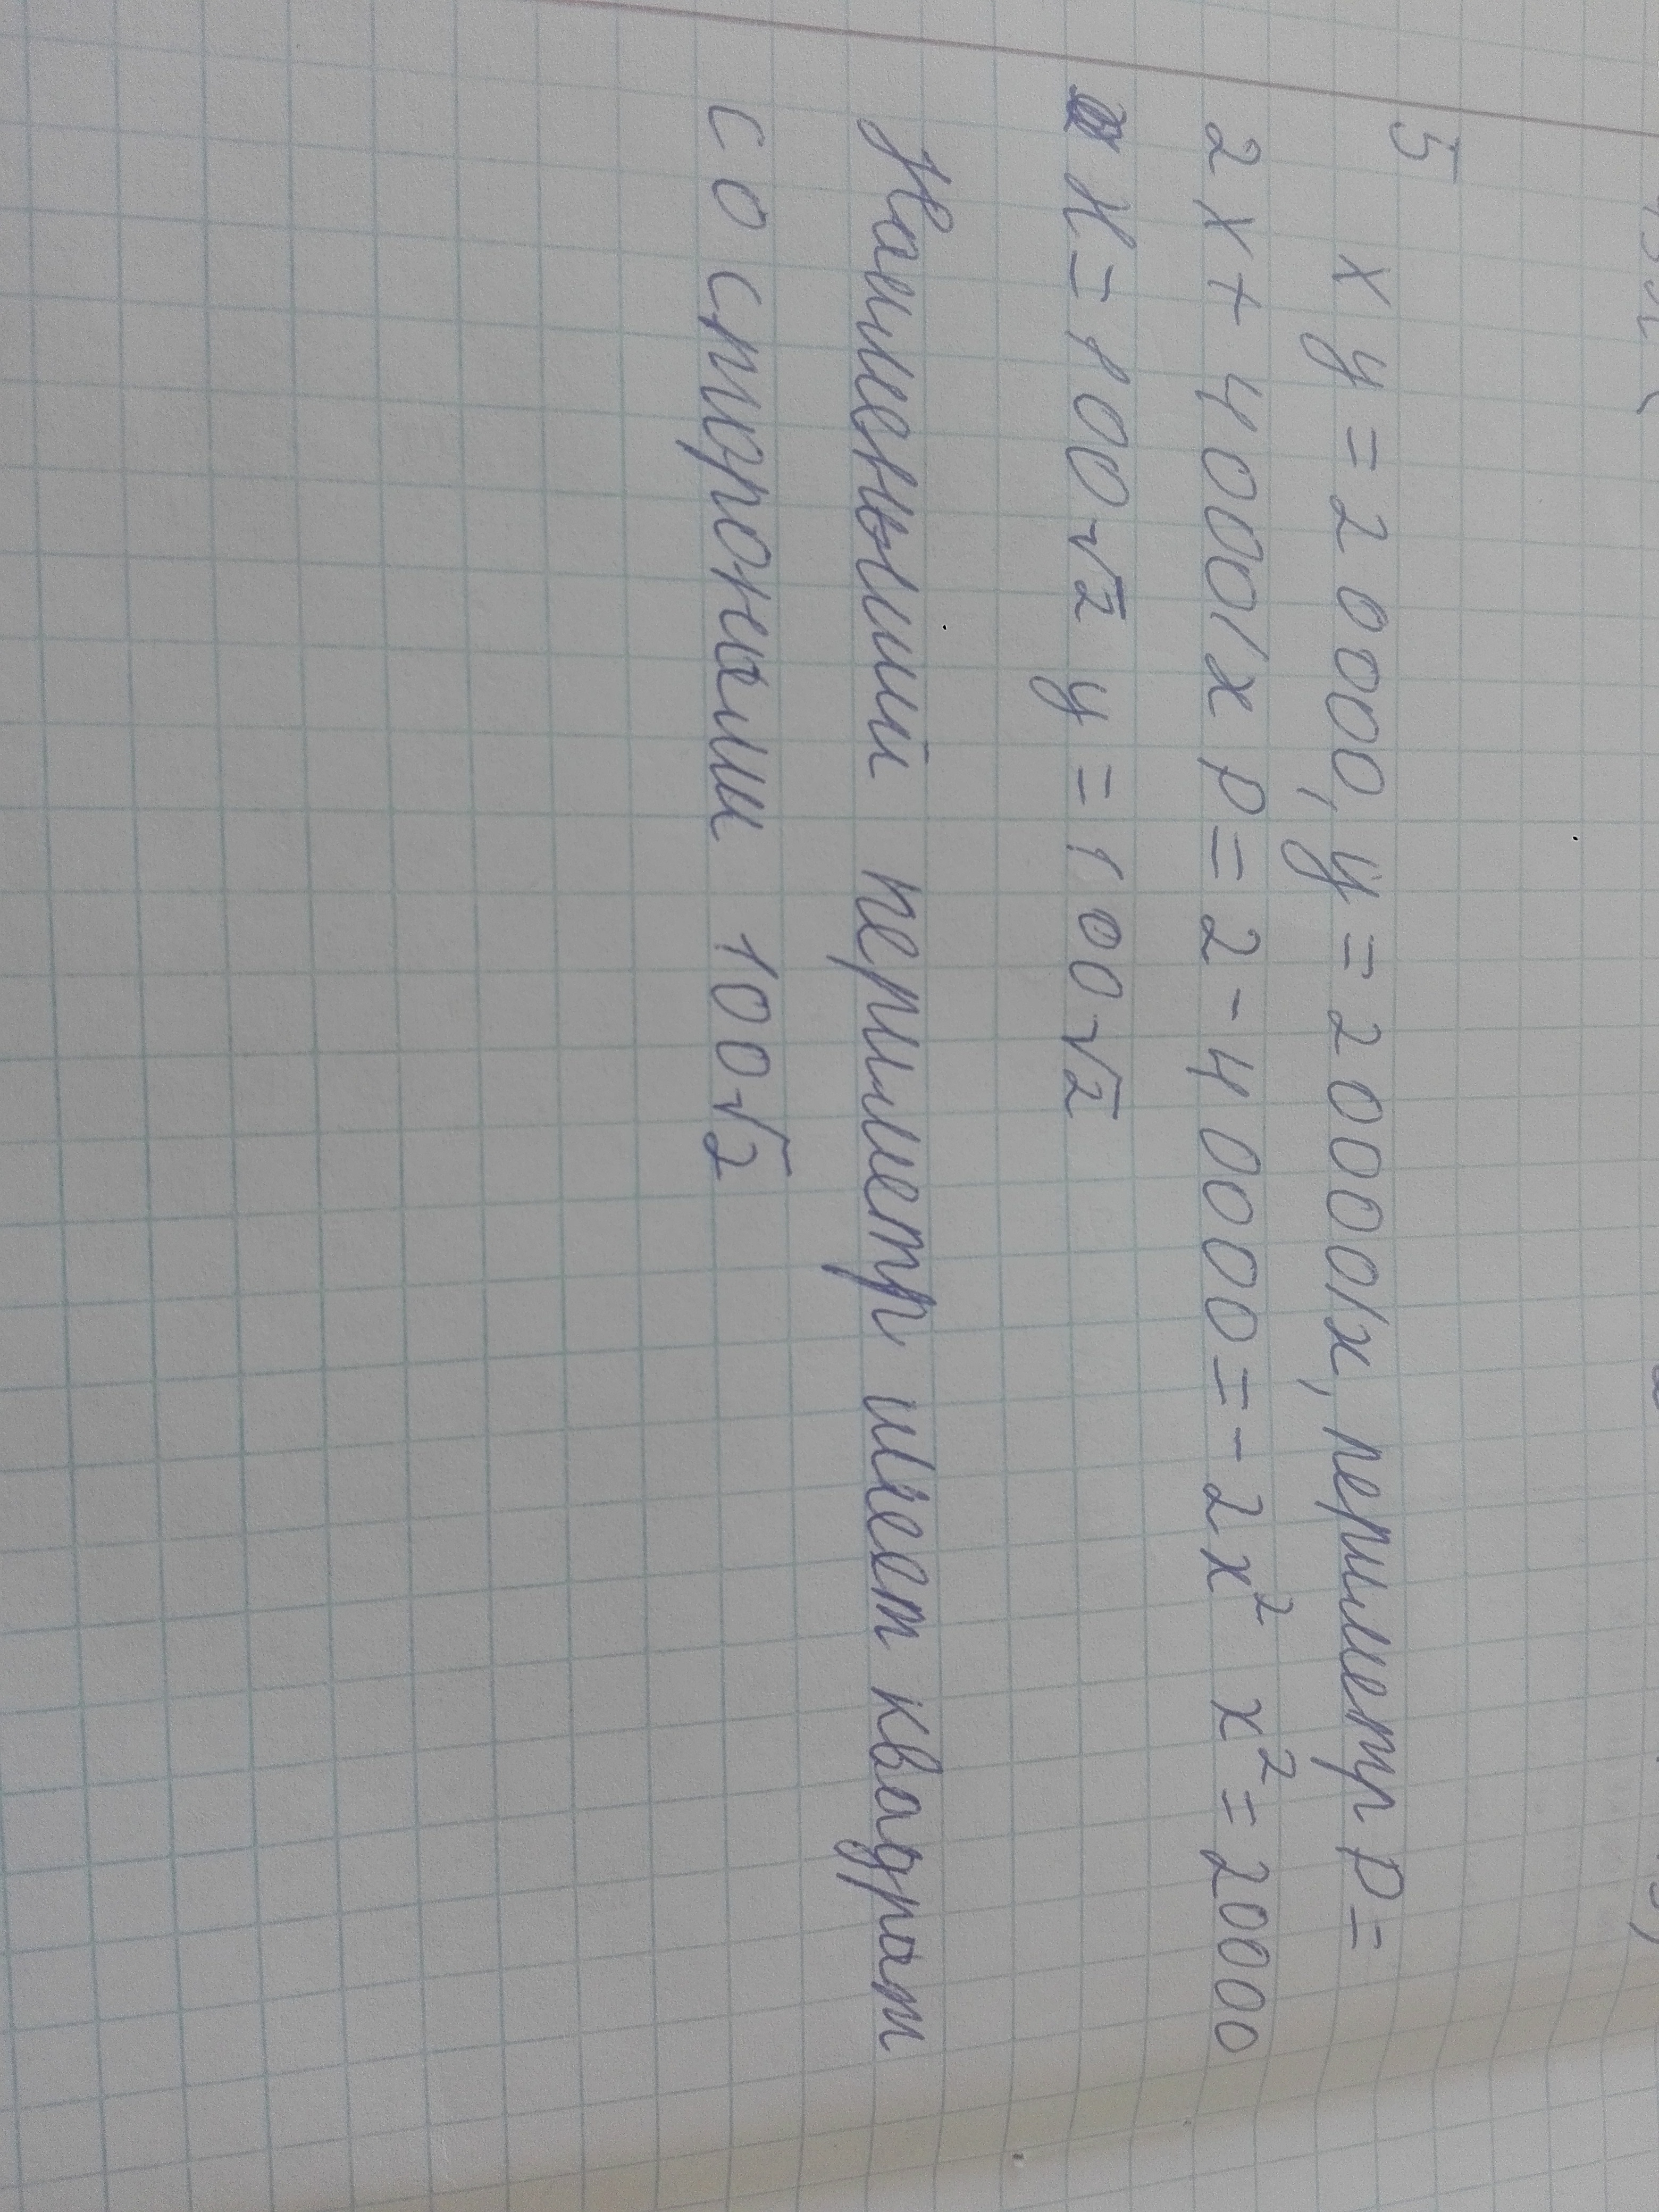 5
xy = 20000, y = 20000/x, периметр P =
2x + 4000/x P = 2 - 40000 = - 2x² x² = 20000
x = 100√2 y = 100√2
Наименьший периметр имеет квадрат
со сторонами 100√2